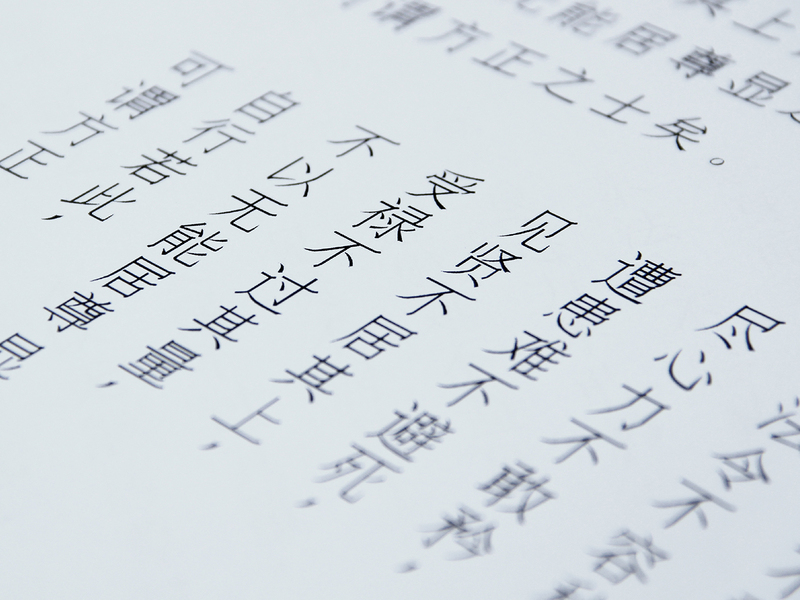 其上
能居尊显
谓方正之士矣。
令不容
尽心力不敢矜,
遭患难不避死,
见贤不居其上,
受禄不过其量,
不以无能居尊显
自行若此,
可谓方正